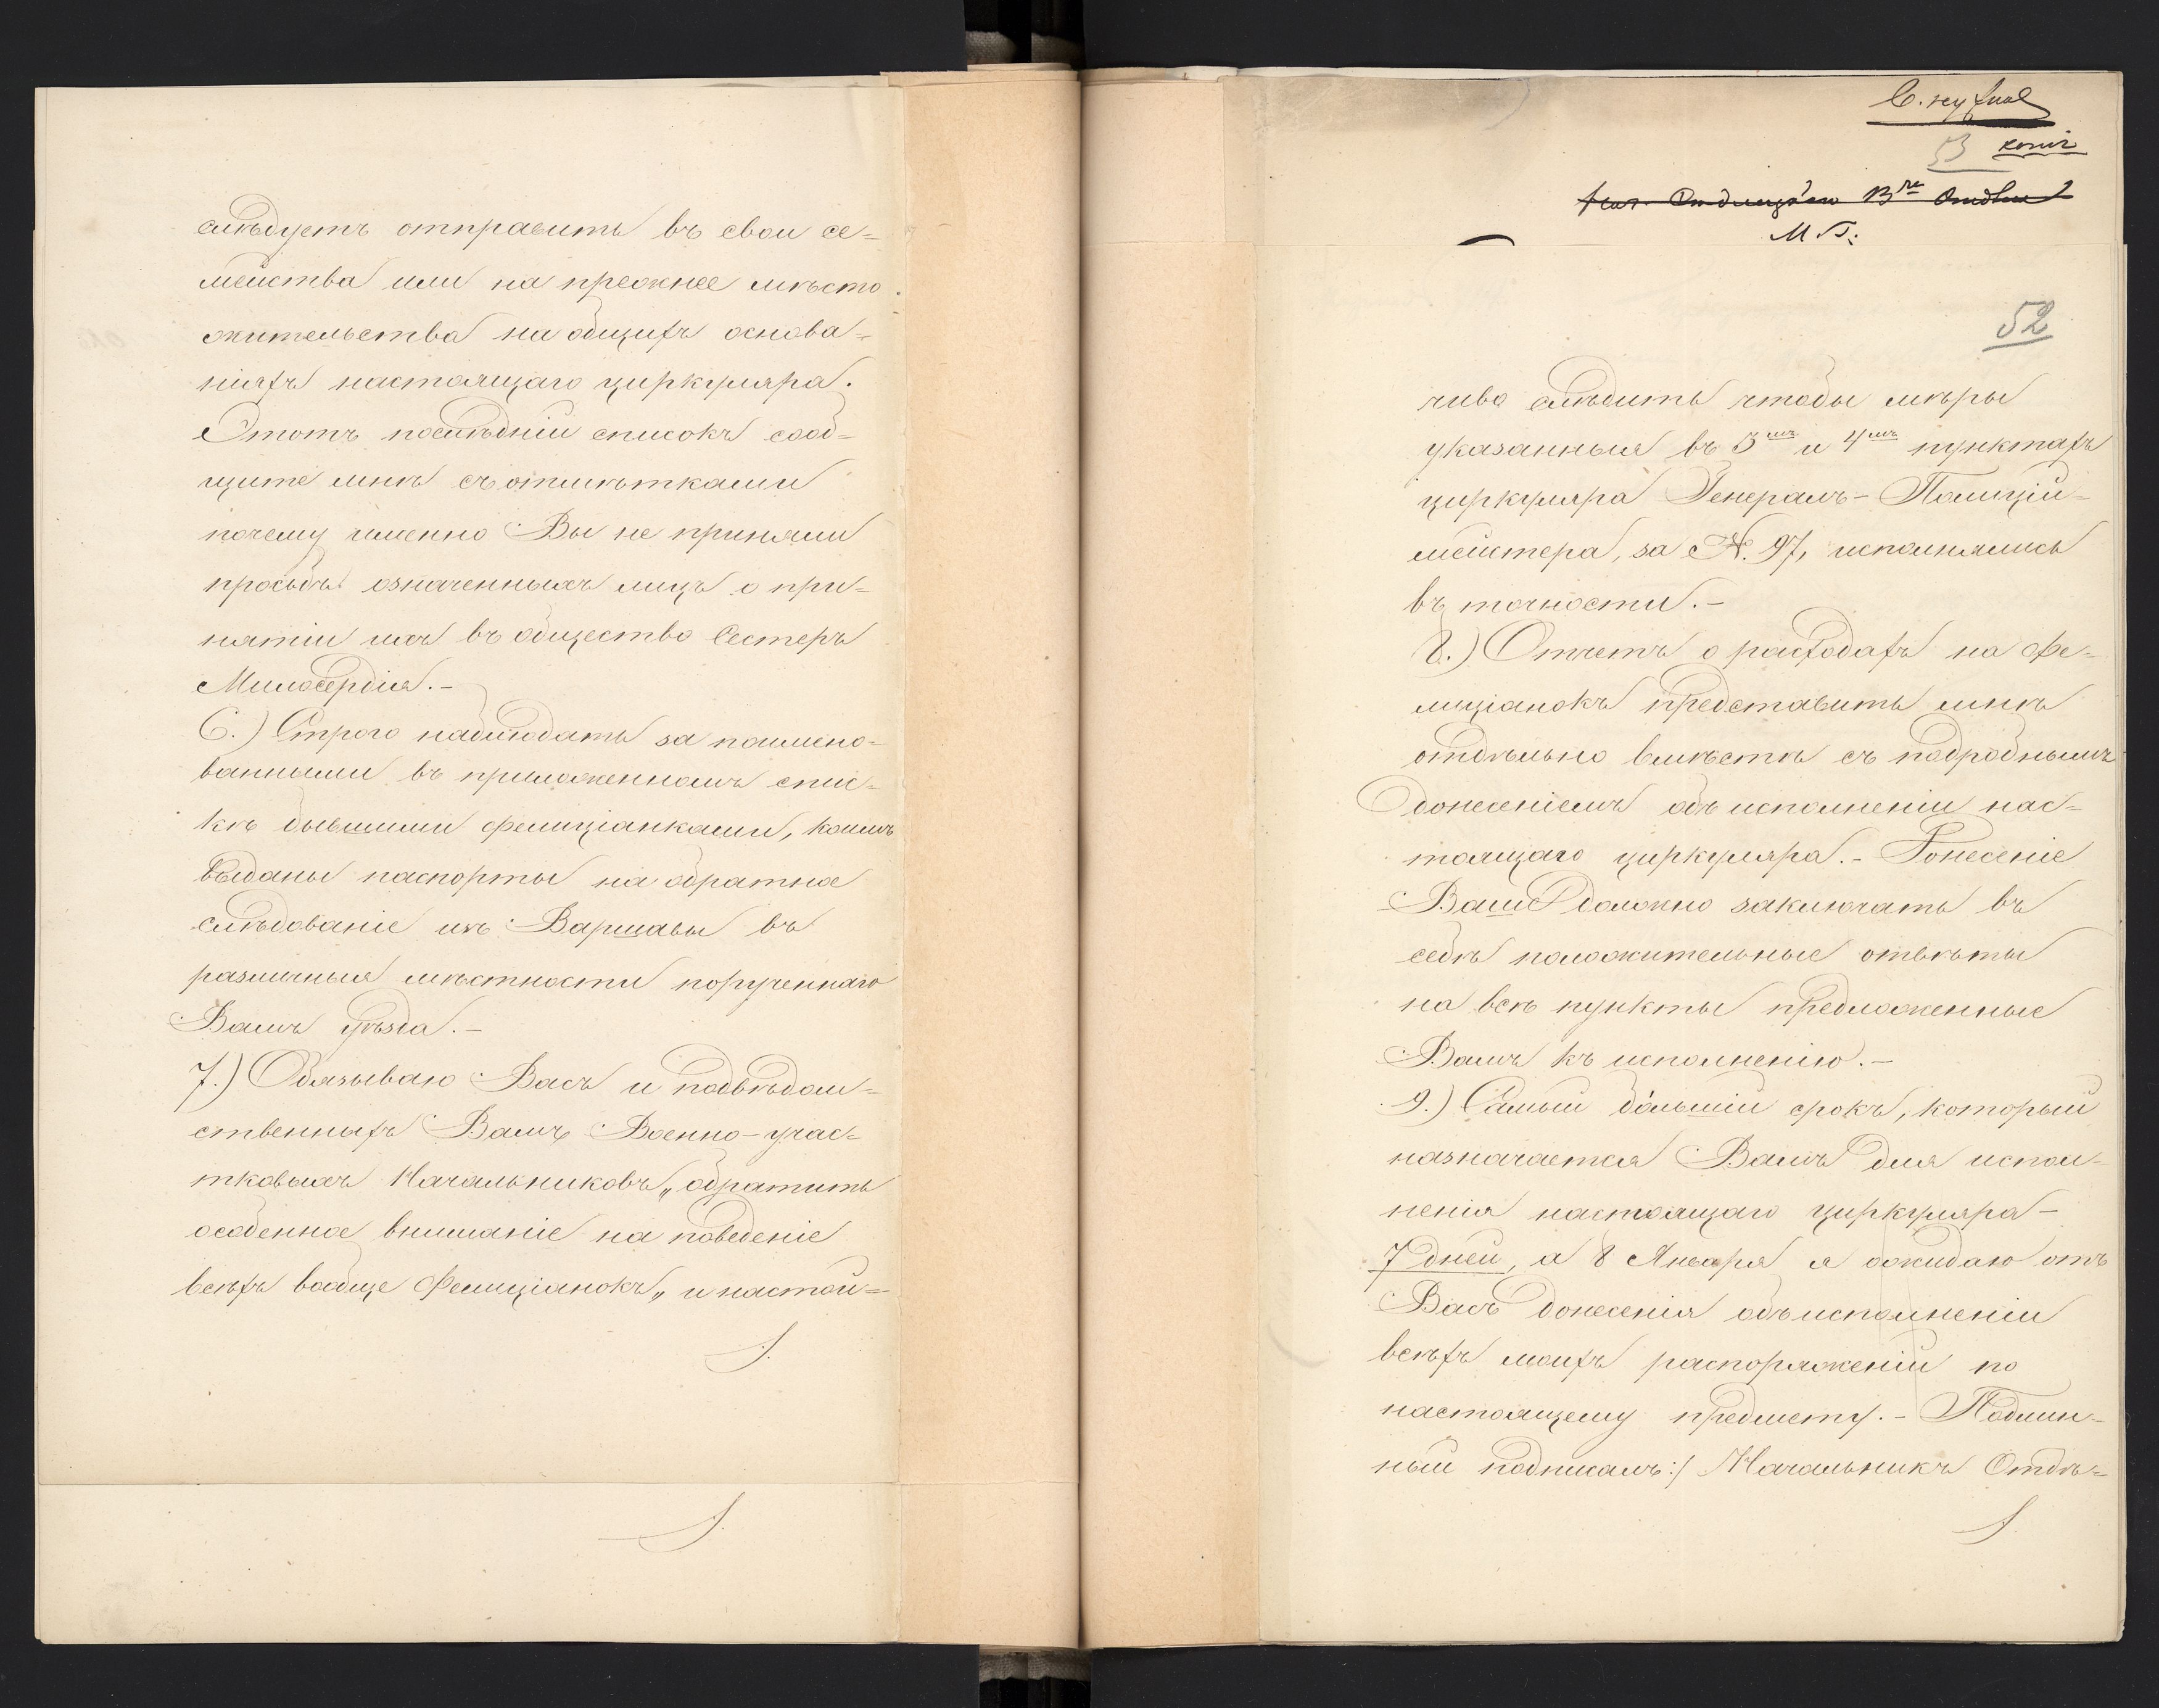 слѣдуетъ отправить въ свои се=
мейства или на прежнее мѣсто
жительства на общихъ основа=
ніяхъ настоящаго циркуляра.
Этотъ послѣдній списокъ сооб=
щите мнѣ съ отмѣтками
почему именно Вы не приняли
просьбы означенныхъ лицъ о при=
нятіи ихъ въ общество Сестеръ
Милосердія.-
6.) Строго наблюдать за поимено=
ванными въ приложенномъ спис=
кѣ бывшими фелиціанками, коимъ
выданы паспорты на обратное
слѣдованіе изъ Варшавы въ
различныя мѣстности порученнаго
Вамъ уѣзда.-
7.) Обязываю Васъ и подвѣдом=
ственныхъ Вамъ Военно-учас=
тковыхъ Начальниковъ„ обратить
особенное вниманіе на поведеніе
всѣхъ вообще Фелиціанокъ„ и настой=
копія
М. Г.
52
чиво слѣдить чтобы мѣры
указанныя въ 3мъ и 4мъ пунктахъ
циркуляра Генералъ-Полицій=
мейстера, за №. 97, исполнялись
въ точности.-
8.) Отчетъ о расходахъ на Фе=
лиціанокъ представить мнѣ
отдѣльно вмѣстѣ съ подробнымъ
донесеніемъ объ исполненіи нас=
тоящаго циркуляра.- Донесеніе
Ваше должно заключать въ
себѣ положительные отвѣты
на всѣ пункты предложенные
Вамъ къ исполненію.-
9.) Самый бо́льшій срокъ, который
назначается Вамъ для испол=
ненія настоящаго циркуляра-
7 дней, а 8 Января я ожидаю отъ
Васъ донесенія объ исполненіи
всѣхъ моихъ распоряженій по
настоящему предмету.- Подлин=
ный подписалъ:/ Начальникъ Отдѣ=